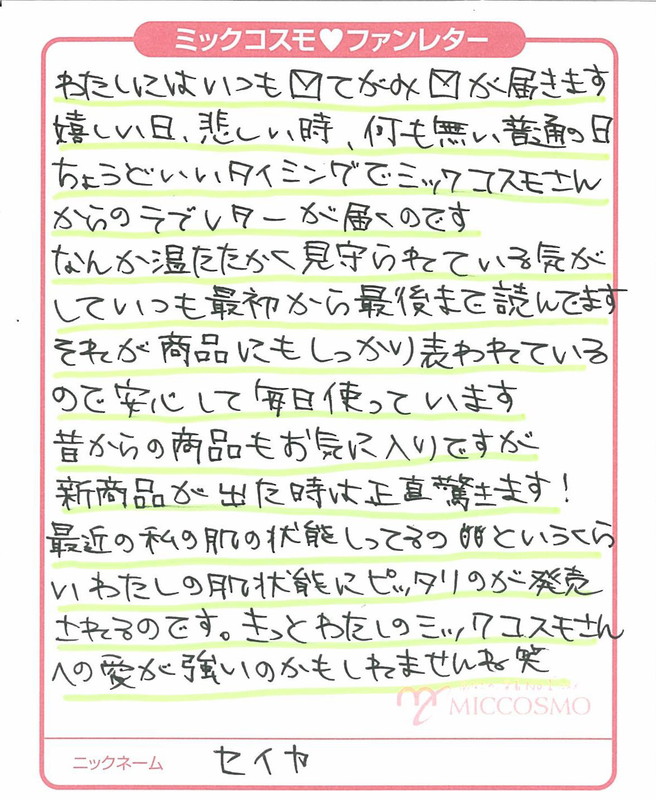 ミックコスモ♥ファンレター
わたしにはいつも✉てがみ✉が届きます
嬉しい日、悲しい時、何も無い普通の日
ちょうどいいタイミングでミックコスモさん
からのラブレターが届くのです
なんか温たたかく見守られている気が
していつも最初から最後まで読んでます
それが商品にもしっかり表われている
ので安心して毎日使っています
昔からの商品もお気に入りですが
新商品が出た時は正直驚きます!
最近の私の肌の状態しってるの!?というくら
いわたしの肌状態にピッタリのが発売
されてるのです。きっとわたしのミックコスモさん
への愛が強いのかもしれませんね笑
MICCOSMO
ニックネーム セイヤ